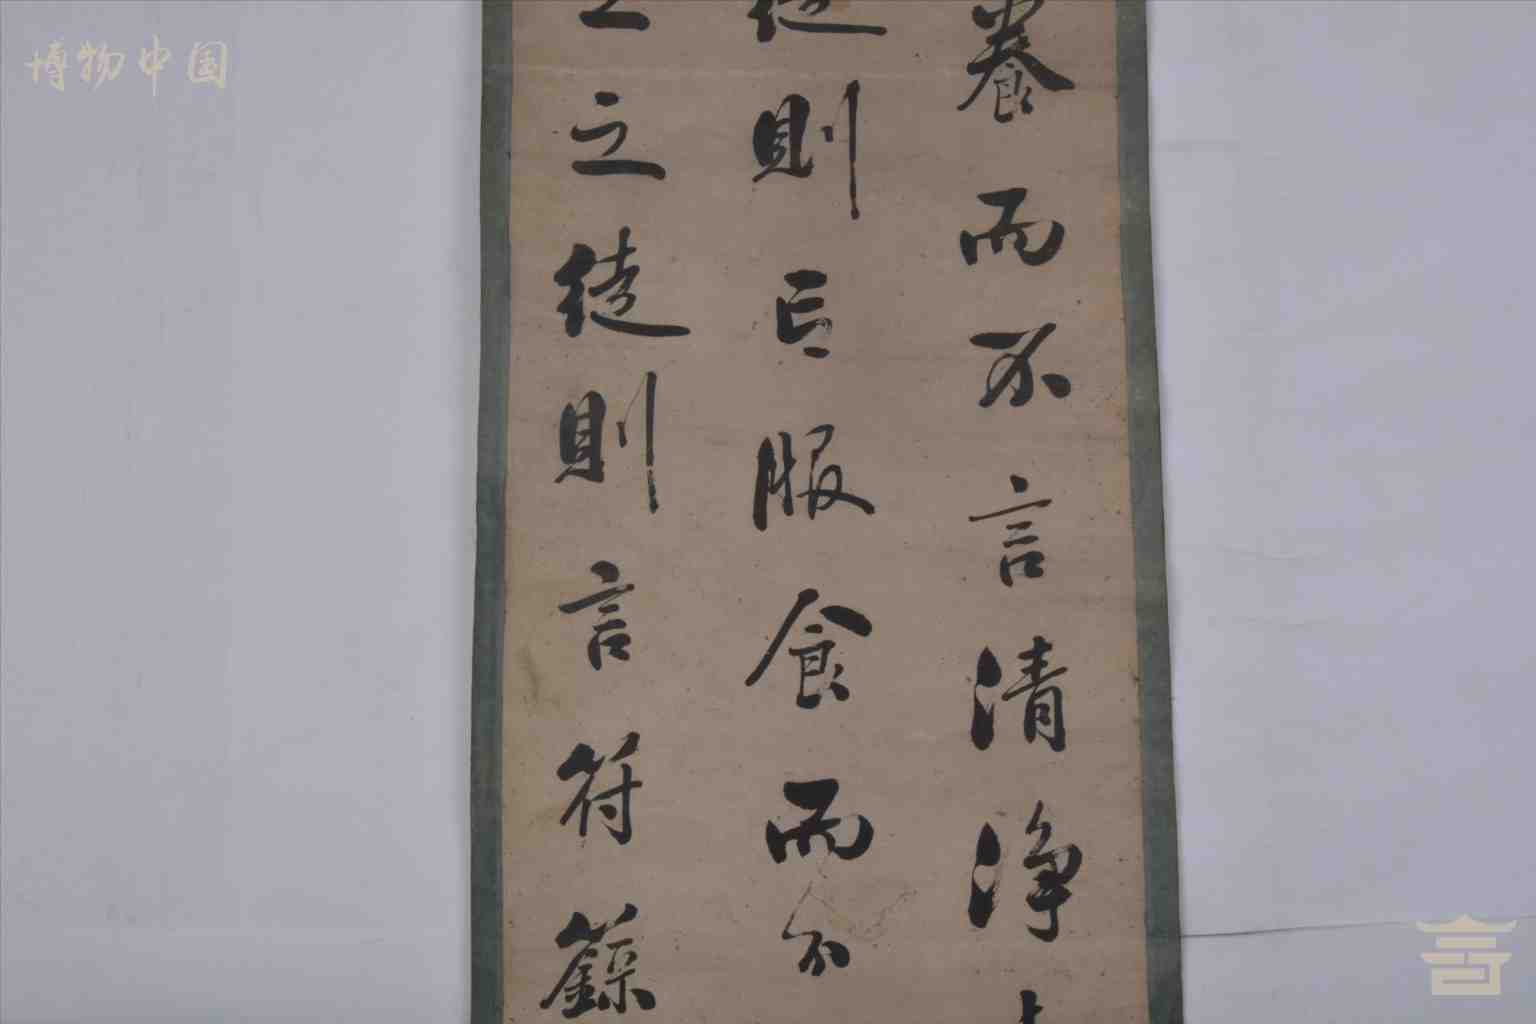 博物中国
養而不言清淨
徒則言服食而不
之之徒則言符籙